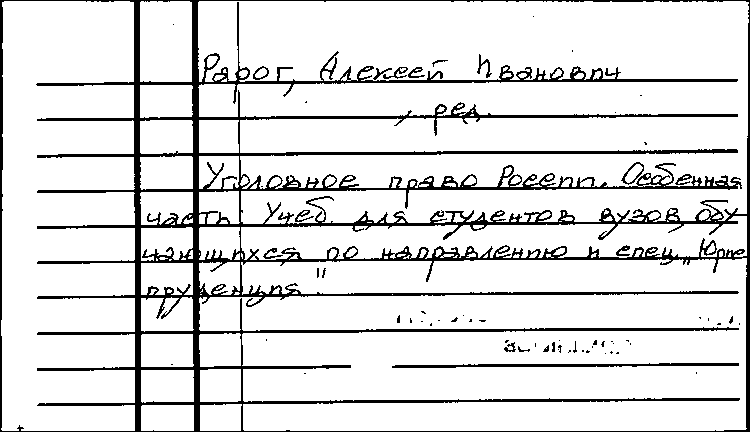 Рарог, Алексей Иванович
, ред.
Уголовное право России. Особенная
часть: Учеб. для студентов вузов, обу-
чающихся по направлению и спец. „Юрис
пруденция"